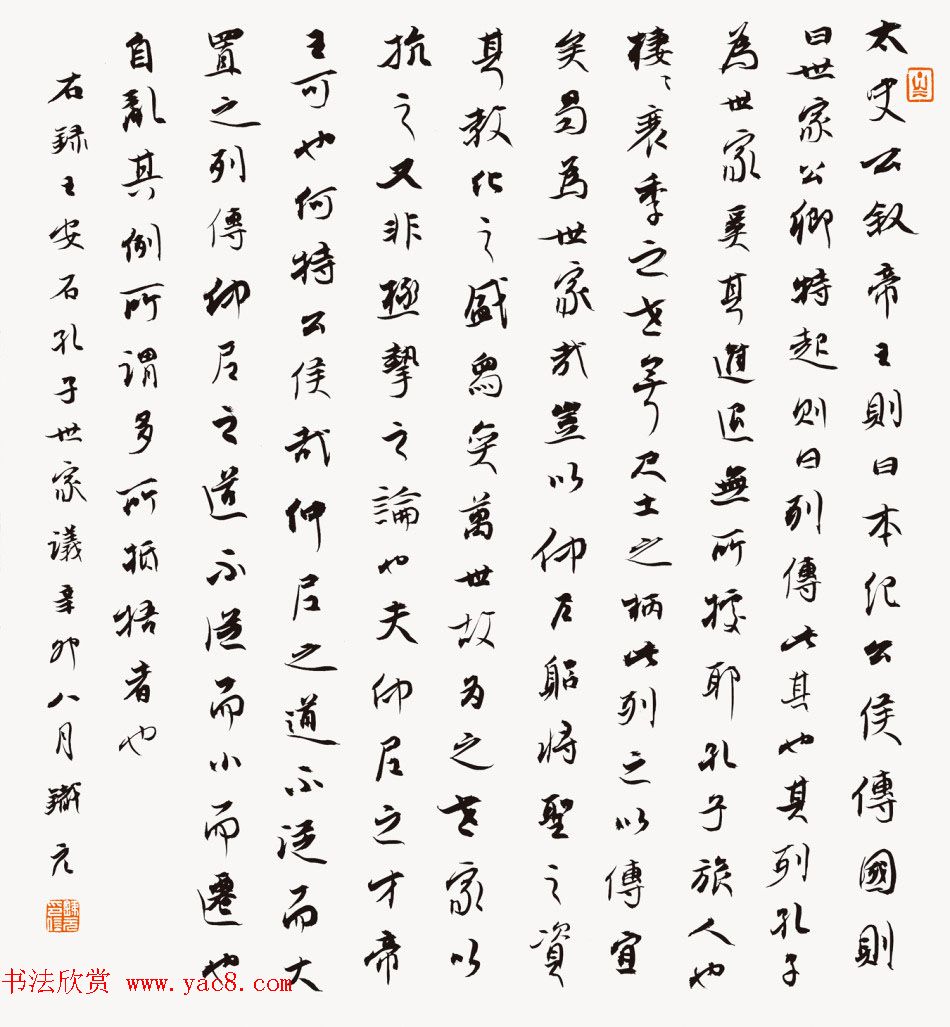 太史公叙帝王則曰本纪公侯傳國則
曰世家公卿特起则曰列傳此其也其列孔子
為世家奚其進退無所據耶孔子旅人也
棲〻衰季之世無尺土之柄此列之以傳宜
矣曷為世家哉豈以仲尼躬将聖之資
其教化之盛舄奕萬世故为之世家以
抗之又非極摯之論也夫仲尼之才帝
王可也何特公侯哉仲尼之道不從而大
置之列傳仲尼之道不從而小而遷也
自亂其例所謂多所抵牾者也
右録王安石孔子世家議辛卯八月
书法欣赏 www.yac8.com